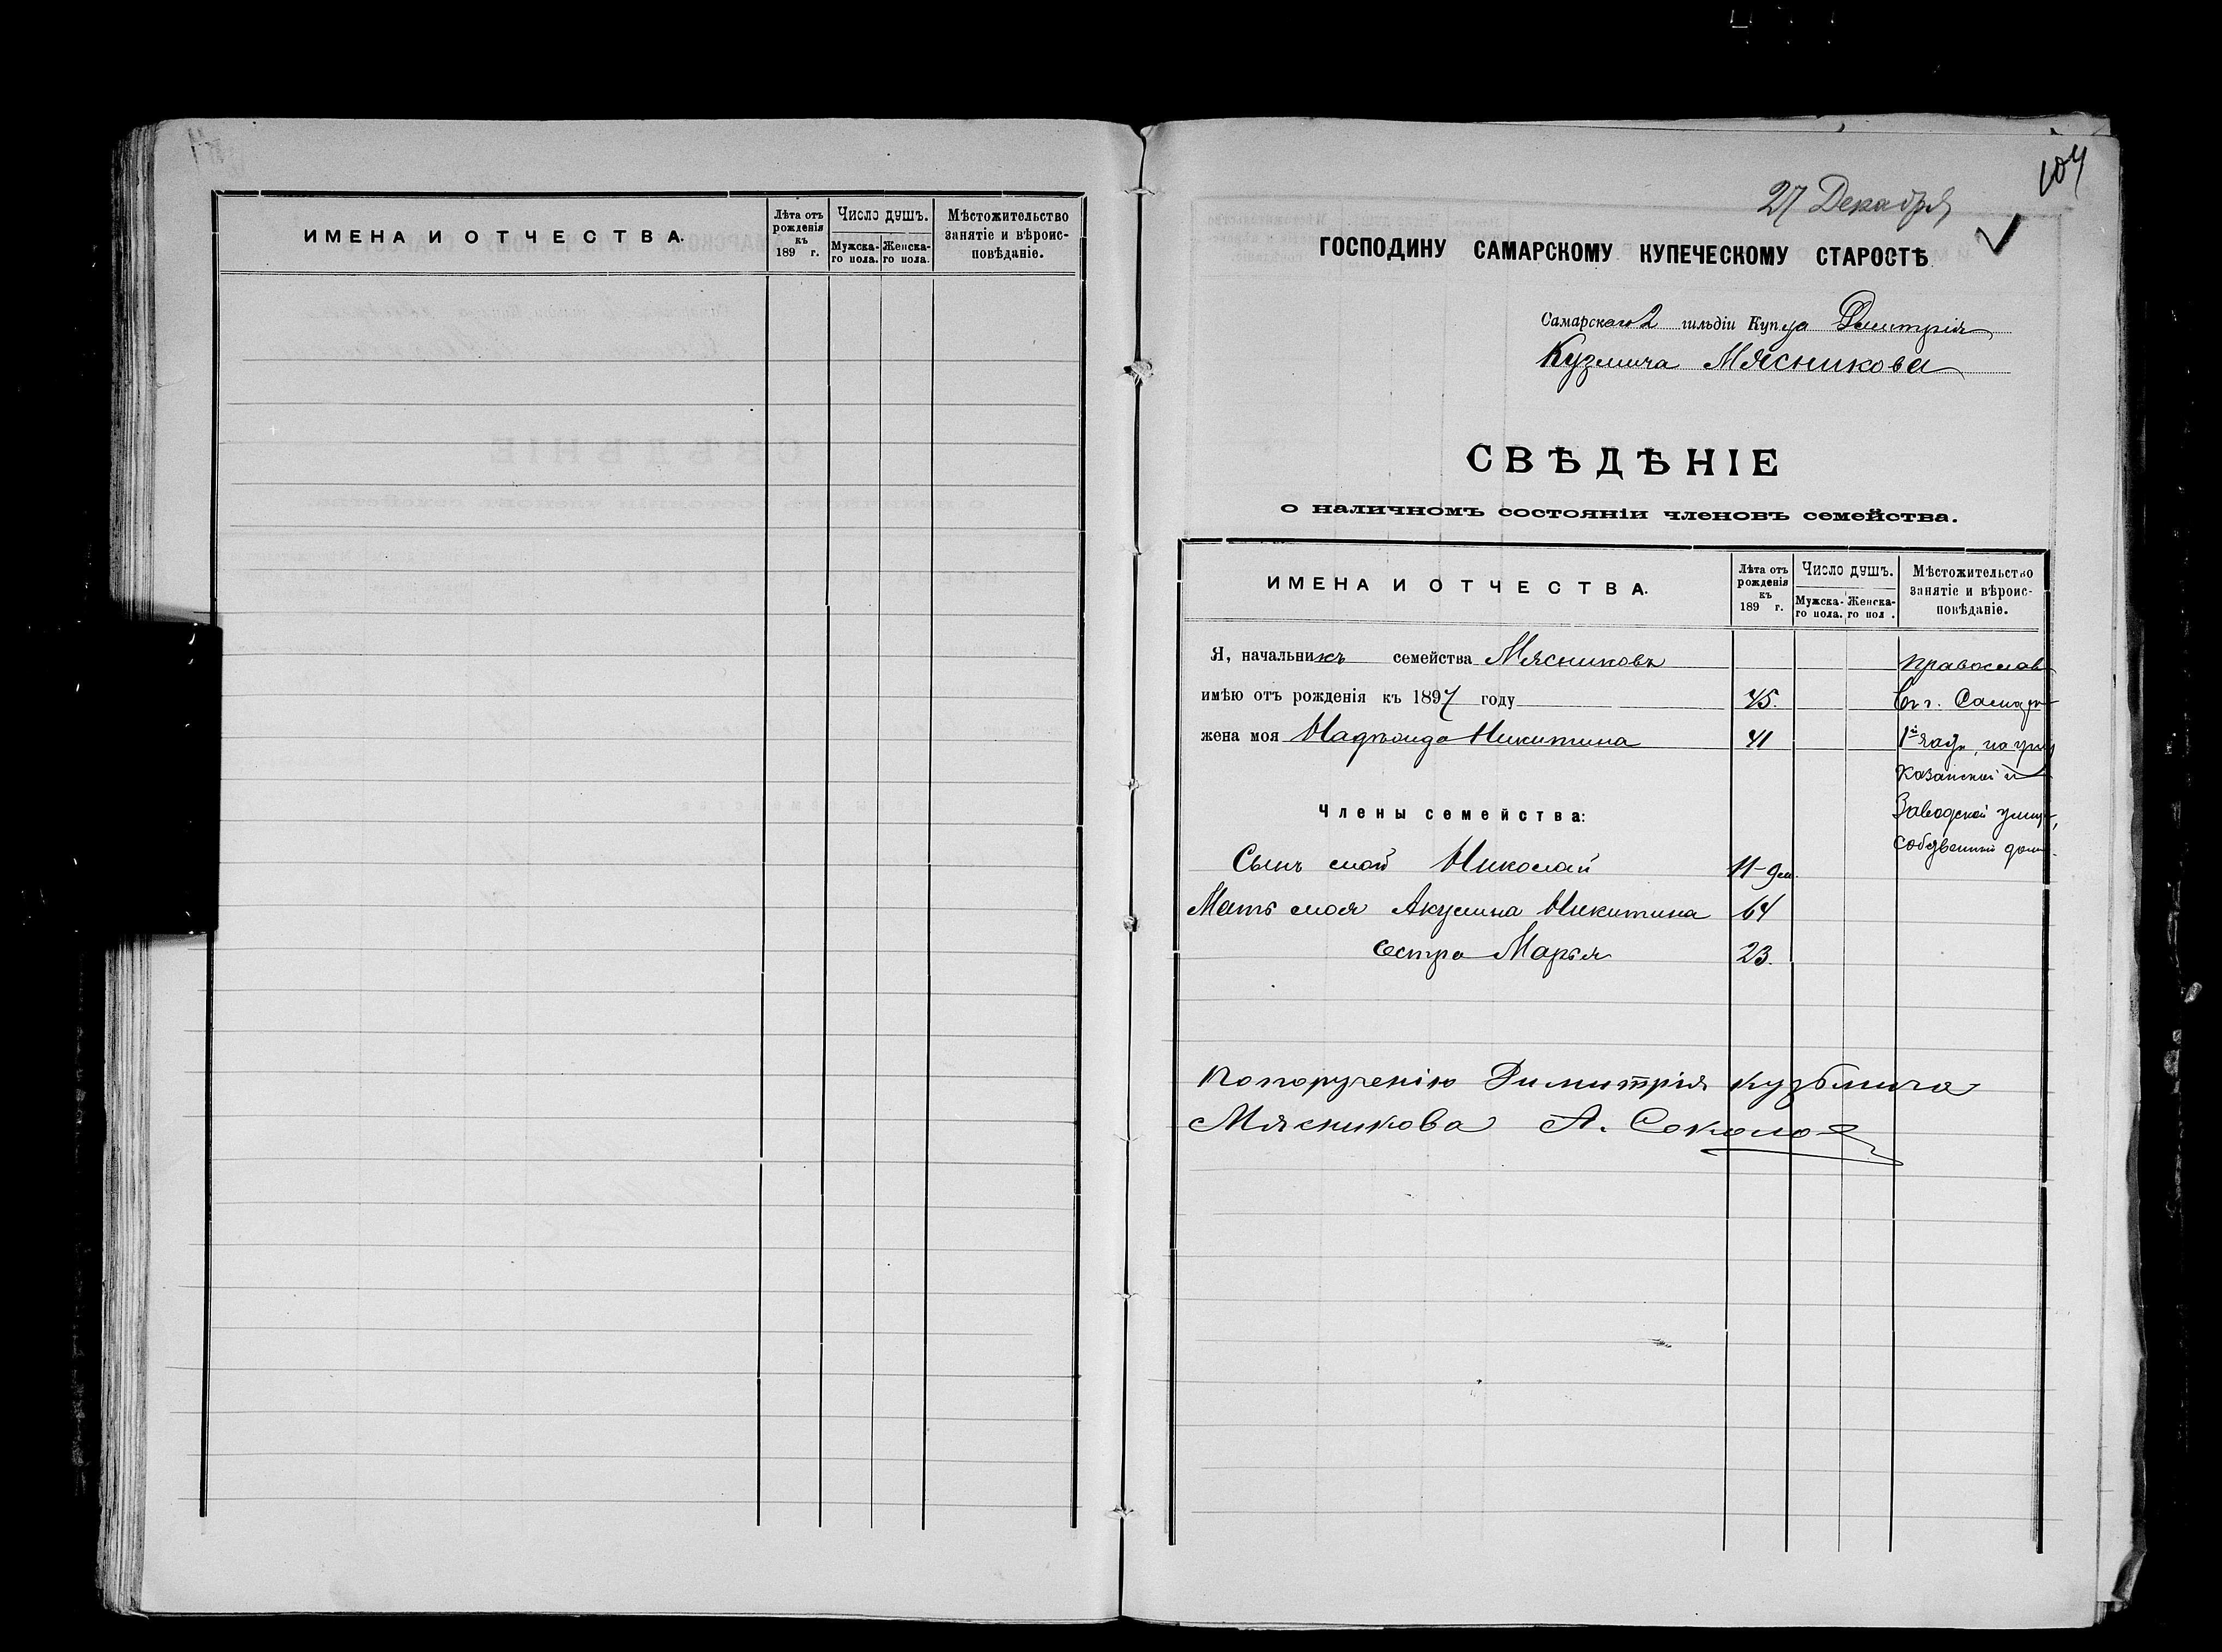 ИМЕНА И ОТЧЕСТВА.
Лѣта отъ рожденія къ 189 г.
Число душъ.
Мужска-го пола.
Женска-го пола.
Мѣстожительство занятіе и вѣроис-повѣданіе.
27 Декабря
ГОСПОДИНУ САМАРСКОМУ КУПЕЧЕСКОМУ СТАРОСТѢ
Самарскаго 2 гильдіи Купца Дмитрія
Кузмича Мясникова
СВѢДѢНІЕ
о наличномъ состояніи членовъ семейства.
ИМЕНА И ОТЧЕСТВА.
Лѣта отъ рожденія къ 189 г.
Число душъ.
Мужска-го пола.
Женска-го пол .
Мѣстожительство занятіе и вѣроис-повѣданіе.
Я, начальникъ семейства Мясниковъ православ
имѣю отъ рожденія къ 1897 году 45. Въ г. Самар
жена моя Надѣжда Никитина 41 1й части, на углу
Казанской и
Заводской улиц,
Члены семейства:
собственный домъ
Сынъ мой Николай 11-9м.
Мать моя Акулина Никитина 64
Сестра Марья 23.
По порученію Димитрія Кузьмича
Мясникова А. Соколов